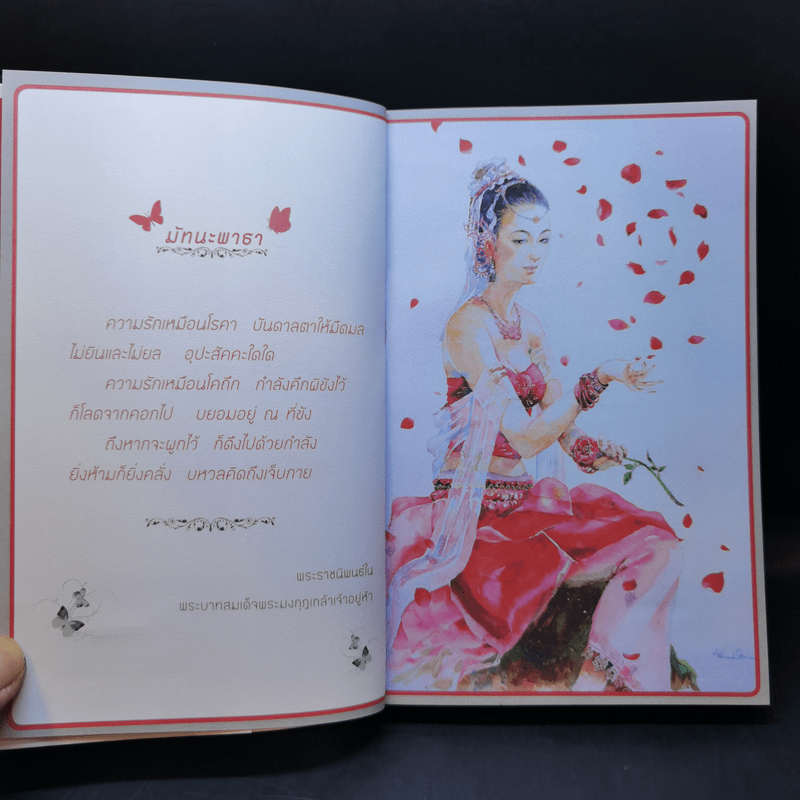 มัทนะพาธา
ความรักเหมือนโรคา บันดาลตาให้มืดมล
ไม่ยินและไม่ยล อุปะสัคคะใดใด
ความรักเหมือนโคถึก กำลังคึกผิขังไว้
ก็โลดจากคอกไป บยอมอยู่ ณ ที่ขัง
ถึงหากจะผูกไว้ ก็ดึงไปด้วยกำลัง
ยิ่งห้ามก็ยิ่งคลั่ง บหวลคิดถึงเจ็บกาย
พระราชนิพนธ์ใน
พระบาทสมเด็จพระมงกุฎเกล้าเจ้าอยู่หัว